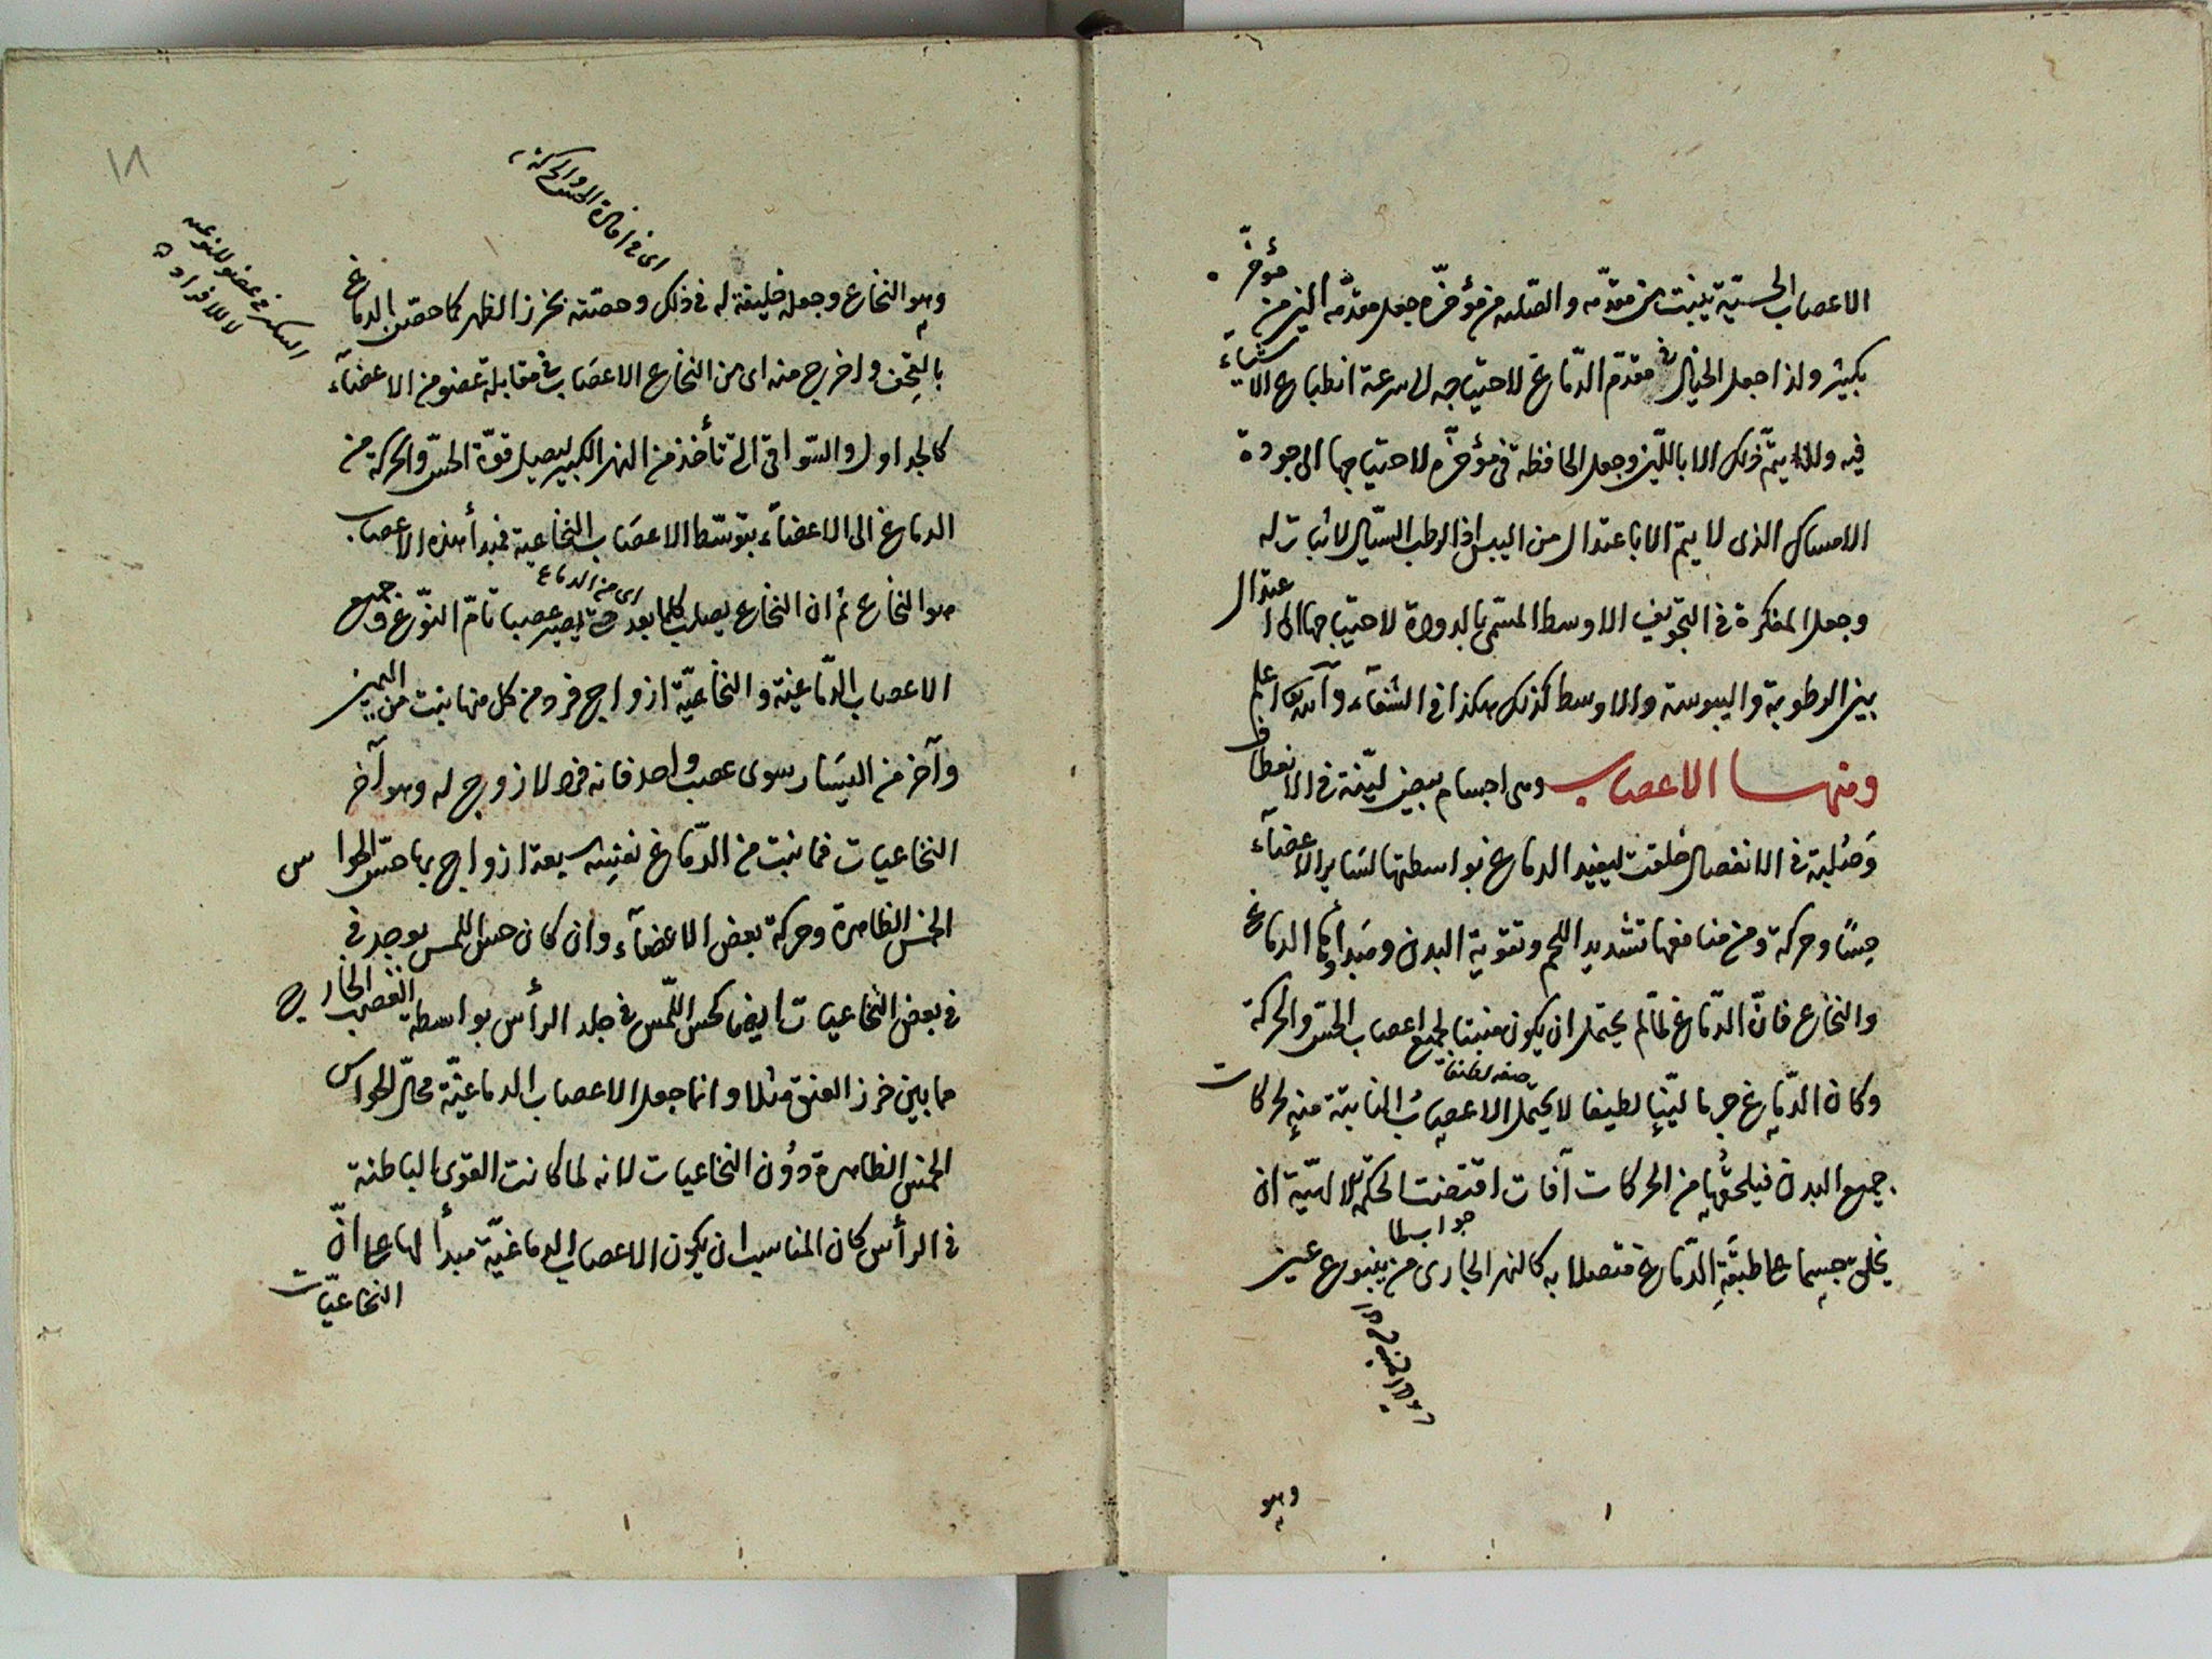 الاعصاب الحسّية ينبت من مقدّمه والصلبه من مؤخّره جعل مقدّمه الين من مؤخّره
بكثير ولذا جعل الخيال فى مقدّم الدّماغ لاحتياجه الى سرعة انطباع الاشياء
فيه ولا يتمّ ذلك الا باللّين وجعل الحافظه فى مؤخّره لاحتياجها الى جودة
الامساك الذى لا يتم الا باعتدال من اليبس اذ الرطب السيّال لا ثبات له
وجعل المفكرة فى التجويف الاوسط المسمّى بالدودة لاحتياجها الى اعتدال
بين الرطوبة واليبوسة والاوسط كذلك هكذا فى الشفآء والله اعلم
ومنها الاعصاب وهى اجسام بيض ليّنة فى الانعطاف
وصُلبة فى الانفصال خلقت ليفيد الدماغ بواسطتها لسَاير الاعضآء
حِسًا وحركة ومن منافعها تشديد اللحم وتقوية البدن ومَبدأوها الدماغ
والنخاع فانّ الدّماغ لمّا لم يحتمل ان يكون منبتا لجميع اعصاب الحسّ والحركة
وكان الدّماغ جرما ليّنا لطيفا لا يحتمل الاعصابُ النابتة منه لحركات
جميع البدن فيلحقُها من الحركات آفات اقتضت الحكمة الالهيّة ان
جواب لما
يخلق جسما على طبيقةِ الدّماغ متصلا به كالنهر الجارى من ينبوع عين
وهو
١٨
اى فى افادة الحس والحركة
وهو النخاع وجعله خليفة له فى ذلك وحصّنه بخرز الظهر كما حصّن الدماغ
بالقحف واخرج منه اى من النخاع الاعصَاب فى مقابلة عضو من الاعضآء
كالجداول والسّواقى التى تأخذ من النهر الكبير ليصل قوّة الحسّ والحركة من
الدماغ الى الاعضآء بتوسّط الاعصَاب النخاعية فمبدأ هذه الاعصاب
اى من الدماغ
هو النخاع ثم ان النخاع يصلب كلما بعد حتى يصير عصبا تامّ النوع وجميع
الاعصاب الدّماغية والنخاعيّة ازواج فرد من كل منها ينبت من اليمين
وآخر من اليسَار سوى عصب واحد فانه فرد لا زوج له وهو آخر
النخاعيات فما ينبت من الدّماغ نفسِه سبعة ازواج بها حسّ الحواس
الخمس الظاهرة وحركة بعض الاعضآء وان كان حسّ اللمس يوجد فى
فى بعض النّخاعيات ايضا كحس اللّمس فى جلد الرأس بواسطة العصب الخارج
مما بين خرز العنق مثلا وانما جعل الاعصاب الدماغيّة محلّ الحواس
الخمس الظاهرة دُون النخاعيات لانه لما كانت القوى الباطنة
فى الرأس كان المناسب ان يكون الاعصاب الدماغيّة مبدأ لها على انّ
النخاعيّات